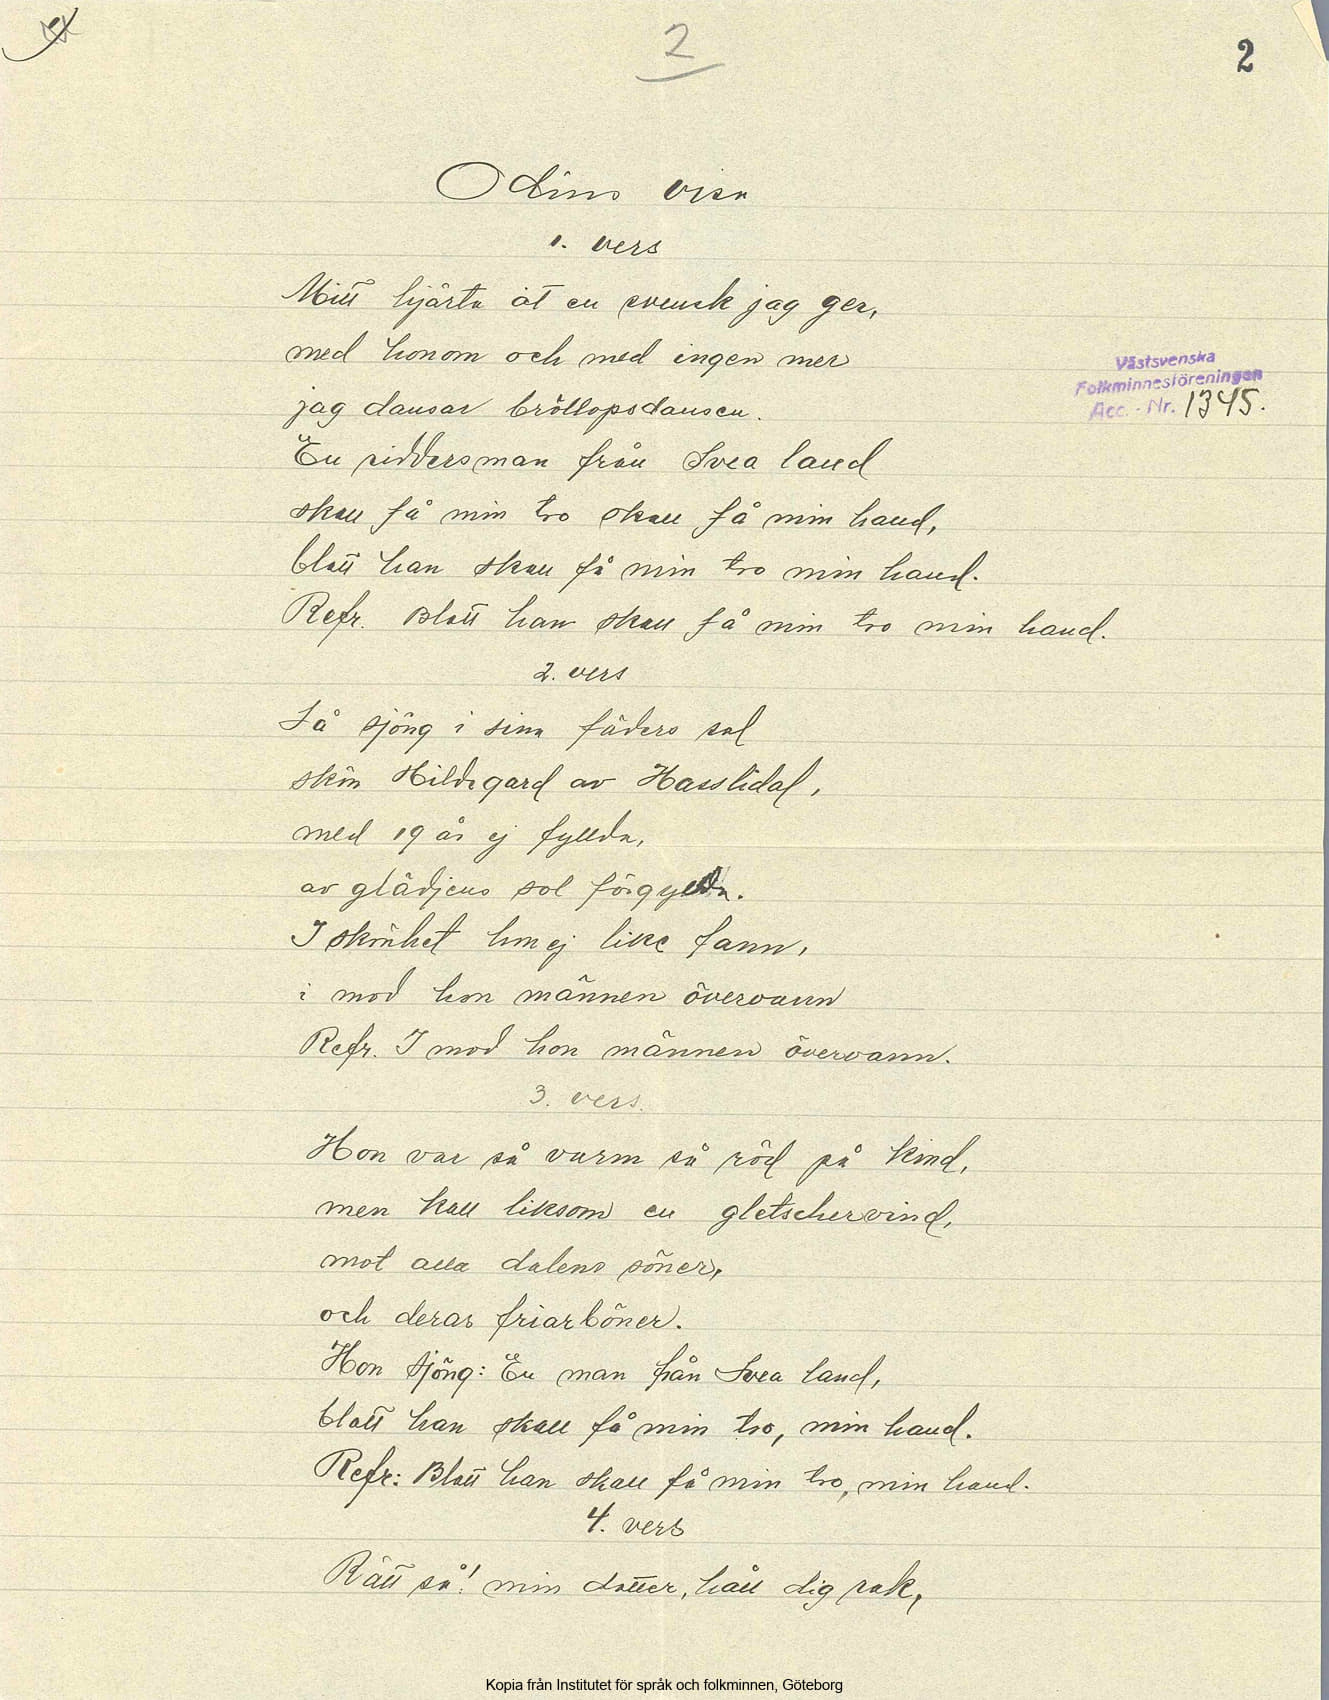 2
2
Odins visa
1. vers
Mitt hjärta åt en svensk jag ger,
med honom och med ingen mer
jag dansar bröllopsdansen.
En riddersman från Svea land
skall få min tro skall få min hand,
blott han skall få min tro min hand.
Refr. Blott han skall få min tro min hand.
Västsvenska
Folkminnesföreningen
Acc. - Nr. 1345.
2. vers
Så sjöng i sina fäders sal
skön Hildegard av Hasslidal,
med 19 år ej fyllda,
av glädjens sol förgyllda.
I skönhet hon ej like fann,
i mod hon männen övervann
Refr. I mod hon männen övervann.
3. vers.
Hon var så varm så röd på kind,
men kall liksom en gletschervind,
mot alla dalens söner,
och deras friarböner.
Hon sjöng: En man från Svea land,
blott han skall få min tro, min hand.
Refr: Blott han skall få min tro, min hand.
4. vers
Rätt så! min dotter, håll dig rak,
Kopia från Institutet för språk och folkminnen, Göteborg